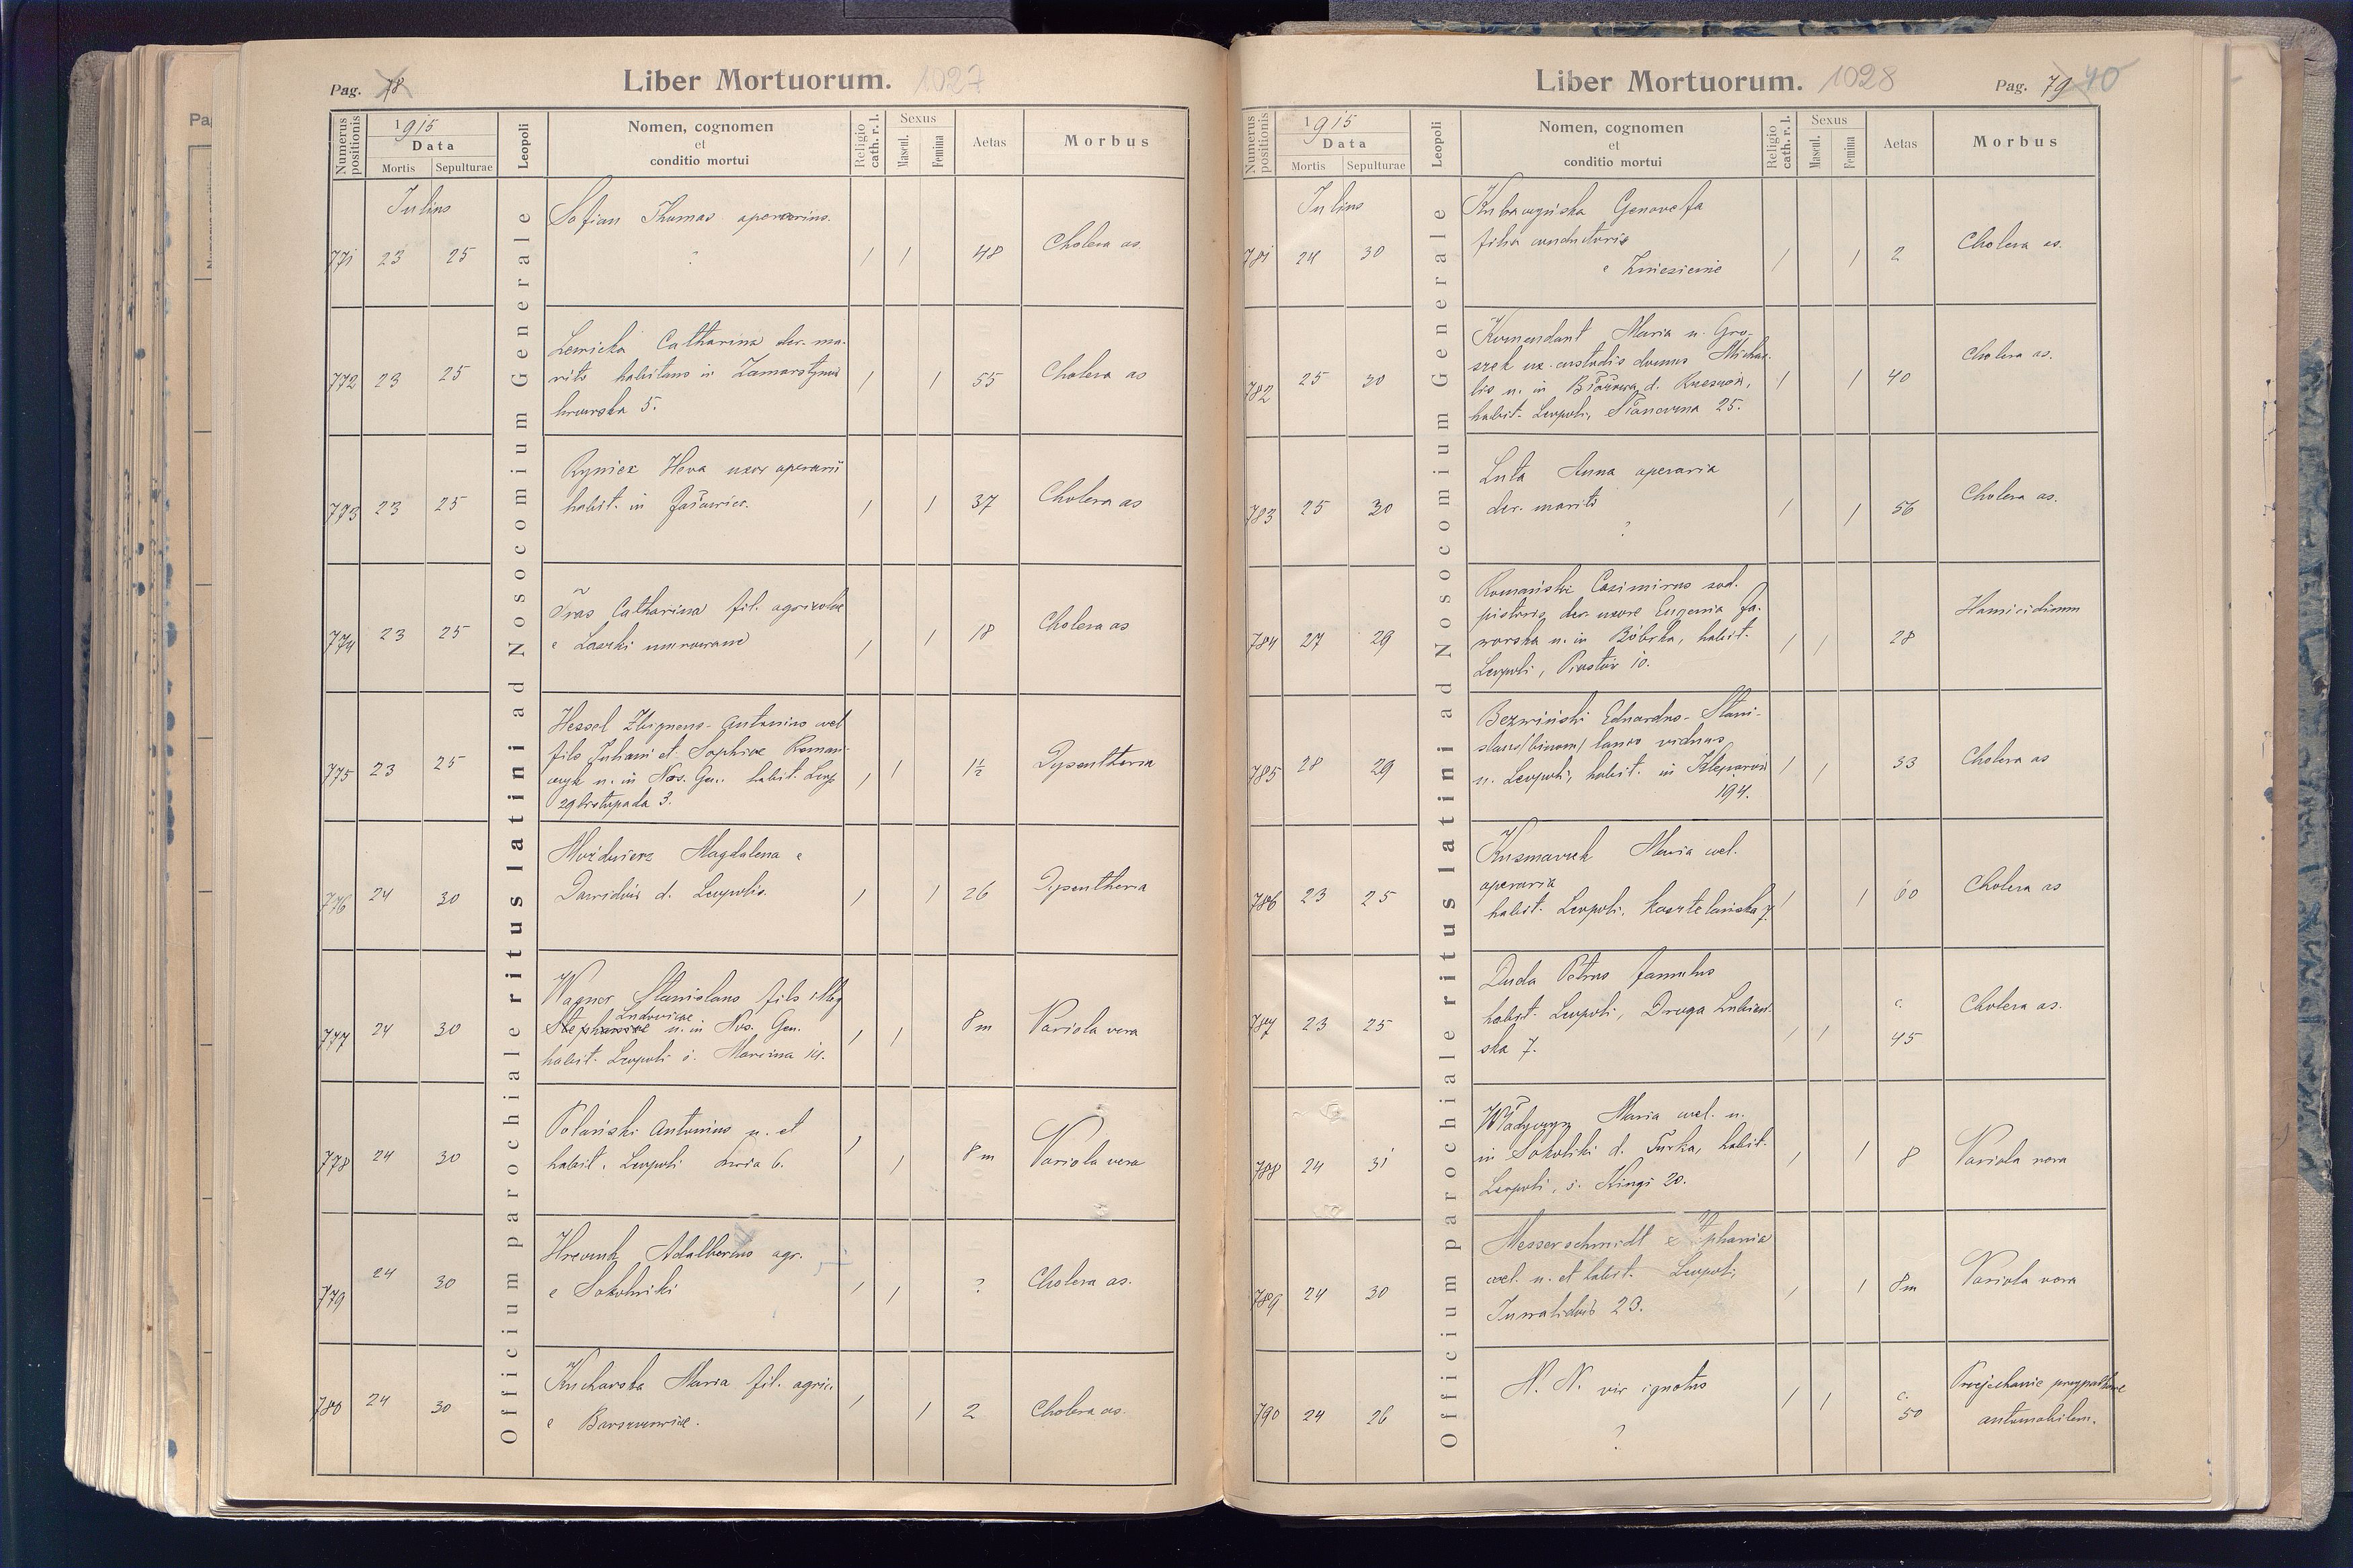 Pag. 78
Liber Mortuorum. 1027
Numerus positionis
1915
Data
Mortis Sepulturae
Leopoli
Nomen, cognomen
et
conditio mortui
Religio cath. r. l.
Sexus
Mascul. Femina
Aetas
Morbus
Officium parochiale ritus latini ad Nosocomium Generale
Julius
771 23 25
Sofian Thomas operarius
?
1 1 48 Cholera as.
772 23 25
Lewicka Catharina der. ma-
rito habitans in Zamarstynów
lwowska 5.
1 1 55 Cholera as
773 23 25
Ryniek Heva uxor operarii
habit. in
1 1 37 Cholera as
774 23 25
Iras Catharina fil. agricolae
e Laszki murowane
1 1 18 Cholera as
775 23 25
Hessel Zbigneus-Antonius cael.
fils Juliani et Sophiae Roman-
czyk n. in Nos. Gen. habit. Leop.
29 listopada 3.
1 1 1½ Dysentheria
776 24 30
Moździerz Magdalena e
Dawidów d. Leopolis.
1 1 26 Dysentheria
777 24 30
Wagner Stanislaus fils illeg
Ludovicae
Stephaniae n. in Nos. Gen.
habit. Leopoli s. Marcina
1 1 8 m Variola vera
778 24 30
Polański Antonius n. et
habit. Leopoli 6.
1 1 8 m Variola vera
779 24 30
Adalbertus agr.
e Sokolniki
1 1 ? Cholera as.
780 24 30
Kucharska Maria fil. agric.
e Barszczowice.
1 1 2 Cholera as.
Liber Mortuorum. 1028
Pag. 79 40
Numerus positionis
1915
Data
Mortis Sepulturae
Leopoli
Nomen, cognomen
et
conditio mortui
Religio cath. r. l.
Sexus
Mascul. Femina
Aetas
Morbus
Officium parochiale ritus latini ad Nosocomium Generale
Julius
781 24 30
Genovefa
filia conductoris
e Zniesienie
1 1 2 Cholera as.
782 25 30
Komendant Maria n. Gro-
szek ux. custodis domus Michae-
lis n. in d. Rzeszów,
habit. Leopoli, 25.
1 1 40 Cholera as.
783 25 30
Luta Anna operaria
der. marito
?
1 1 56 Cholera as.
784 27 29
Romański Casimirus sod.
pistoris, der. uxore Eugenia Ja-
worska n. in Bóbrka, habit.
Leopoli, Piastów 10.
1 1 28 Homicidium
785 28 29
Bezwiński Eduardus-Stani-
slaus/binom/ lanio viduus
n. Leopoli, habit. in Kleparów
194.
1 1 53 Cholera as
786 23 25
Maria cael.
operaria
habit. Leopoli, Kasztelańska 7.
1 1 60 Cholera as
787 23 25
Duda Petrus famulus
habit. Leopoli, Druga
ska 7.
1 1 c. 45 Cholera as.
788 24 31
Maria cael. n.
in Sokoliki d. Turka, habit.
Leopoli, s. Kingi 20.
1 1 8 Variola vera
789 24 30
Messerschmidt
cael. n. et habit. Leopoli,
Inwalidów 23.
1 1 8 m Variola vera
790 24 26
N. N. vir ignotus
?
1 1 c. 50
Przejechanie przypadkowe
automobilem.